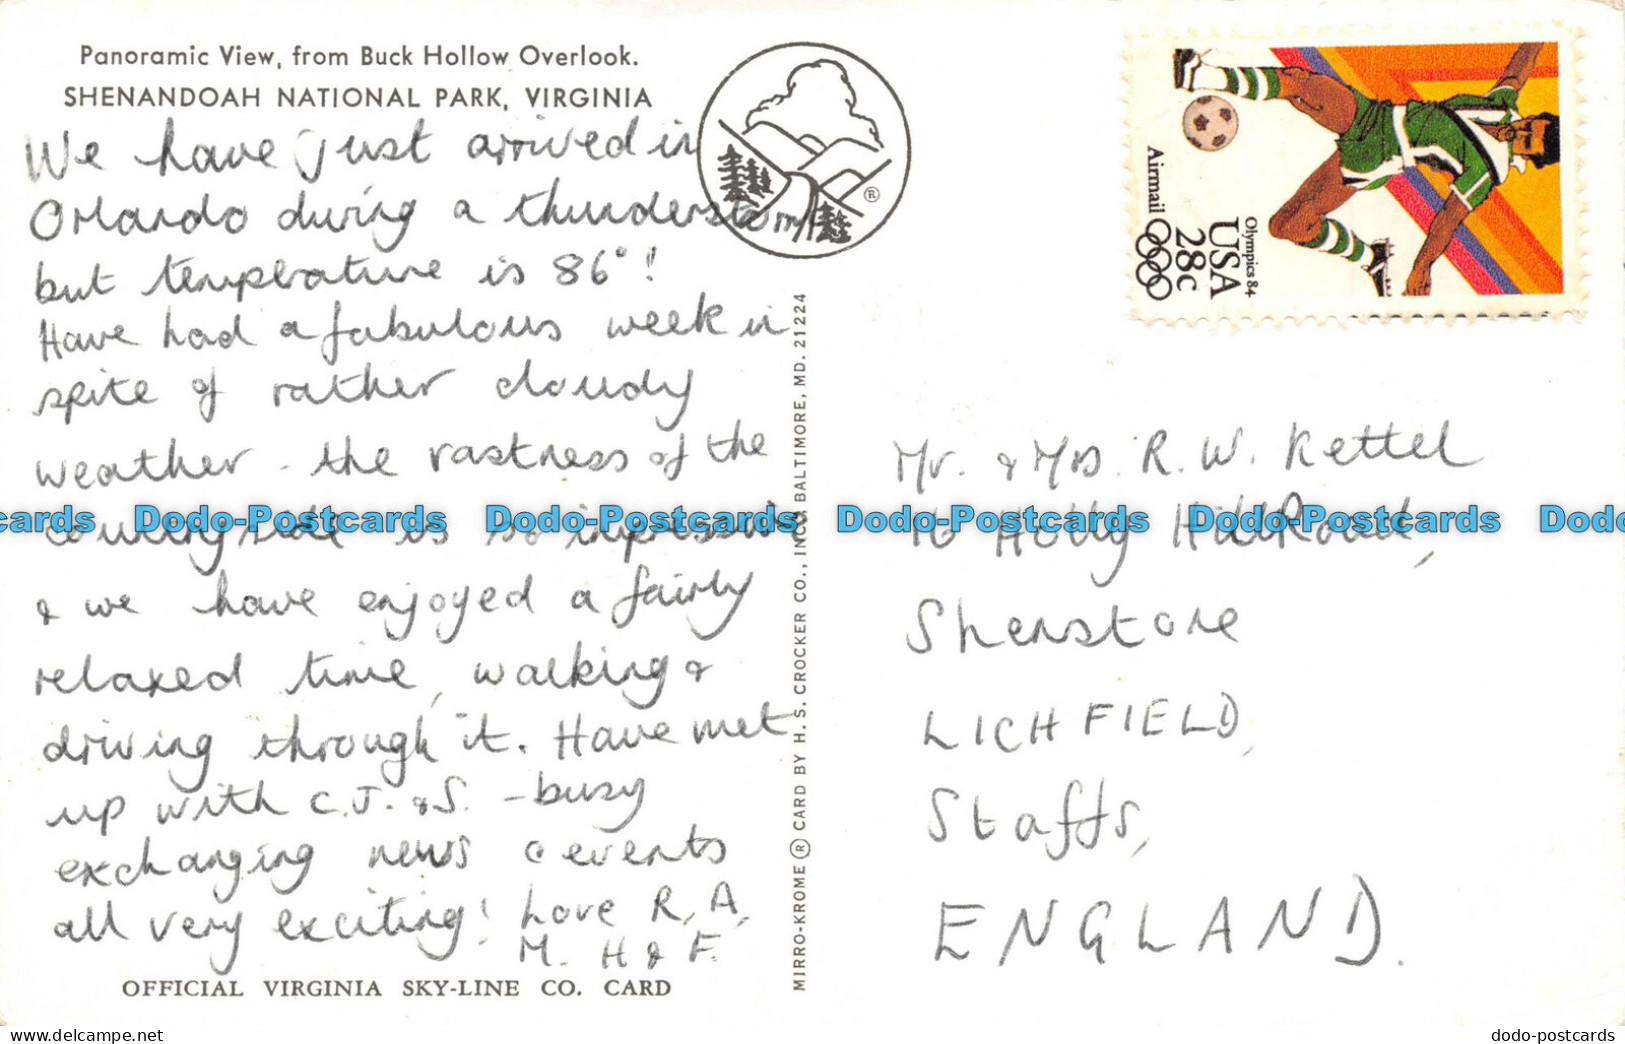 Panoramic View, from Buck Hollow Overlook.
SHENANDOAH NATIONAL PARK, VIRGINIA
We have just arrived in
Orlando during a thunderstorm
but temperature is 86°!
Have had a fabulous week in
spite of rather cloudy
weather - the vastness of the
countryside is so impressive
& we have enjoyed a fairly
relaxed time, walking &
driving through it. Have met
up with C.J. & S. - busy
exchanging news & events
all very exciting! Love R, A,
M. H & F.
OFFICIAL VIRGINIA SKY-LINE CO. CARD
MIRRO-KROME ® CARD BY H. S. CROCKER CO., INC., BALTIMORE, MD. 21224
®
Airmail
Olympics 84
USA
28c
Mr. & Mrs. R. W. Kettel
Holly Hill Road,
Shenstone
LICHFIELD,
Staffs,
ENGLAND.
cards Dodo-Postcards Dodo-Postcards Dodo-Postcards Dodo-Postcards Dodo
www.delcampe.net
dodo-postcards